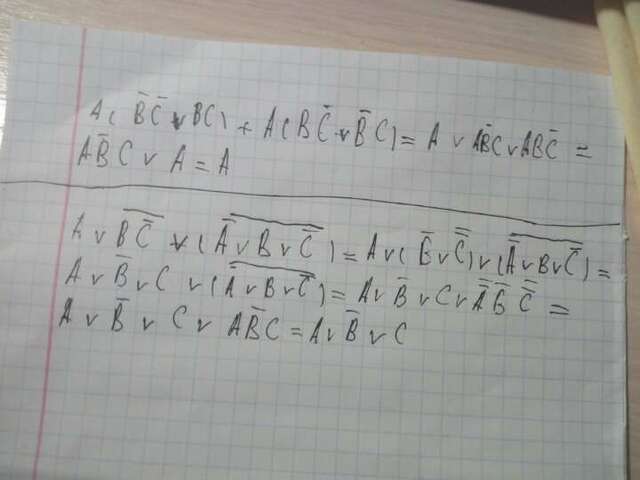 A( B̅C̅ ∨ BC) + A(BC̅ ∨ B̅C) = A ∨ AB̅C ∨ ABC̅ =
AB̅C ∨ A = A
A ∨ \overline{BC̅} ∨ (\overline{A̅ ∨ B ∨ C̅}) = A ∨ (B̅ ∨ \overline{C̅}) ∨ (\overline{A̅ ∨ B ∨ C̅}) =
A ∨ B̅ ∨ C ∨ (\overline{A̅ ∨ B ∨ C̅}) = A ∨ B̅ ∨ C ∨ \overline{A̅} B̅ \overline{C̅} =
A ∨ B̅ ∨ C ∨ AB̅C = A ∨ B̅ ∨ C